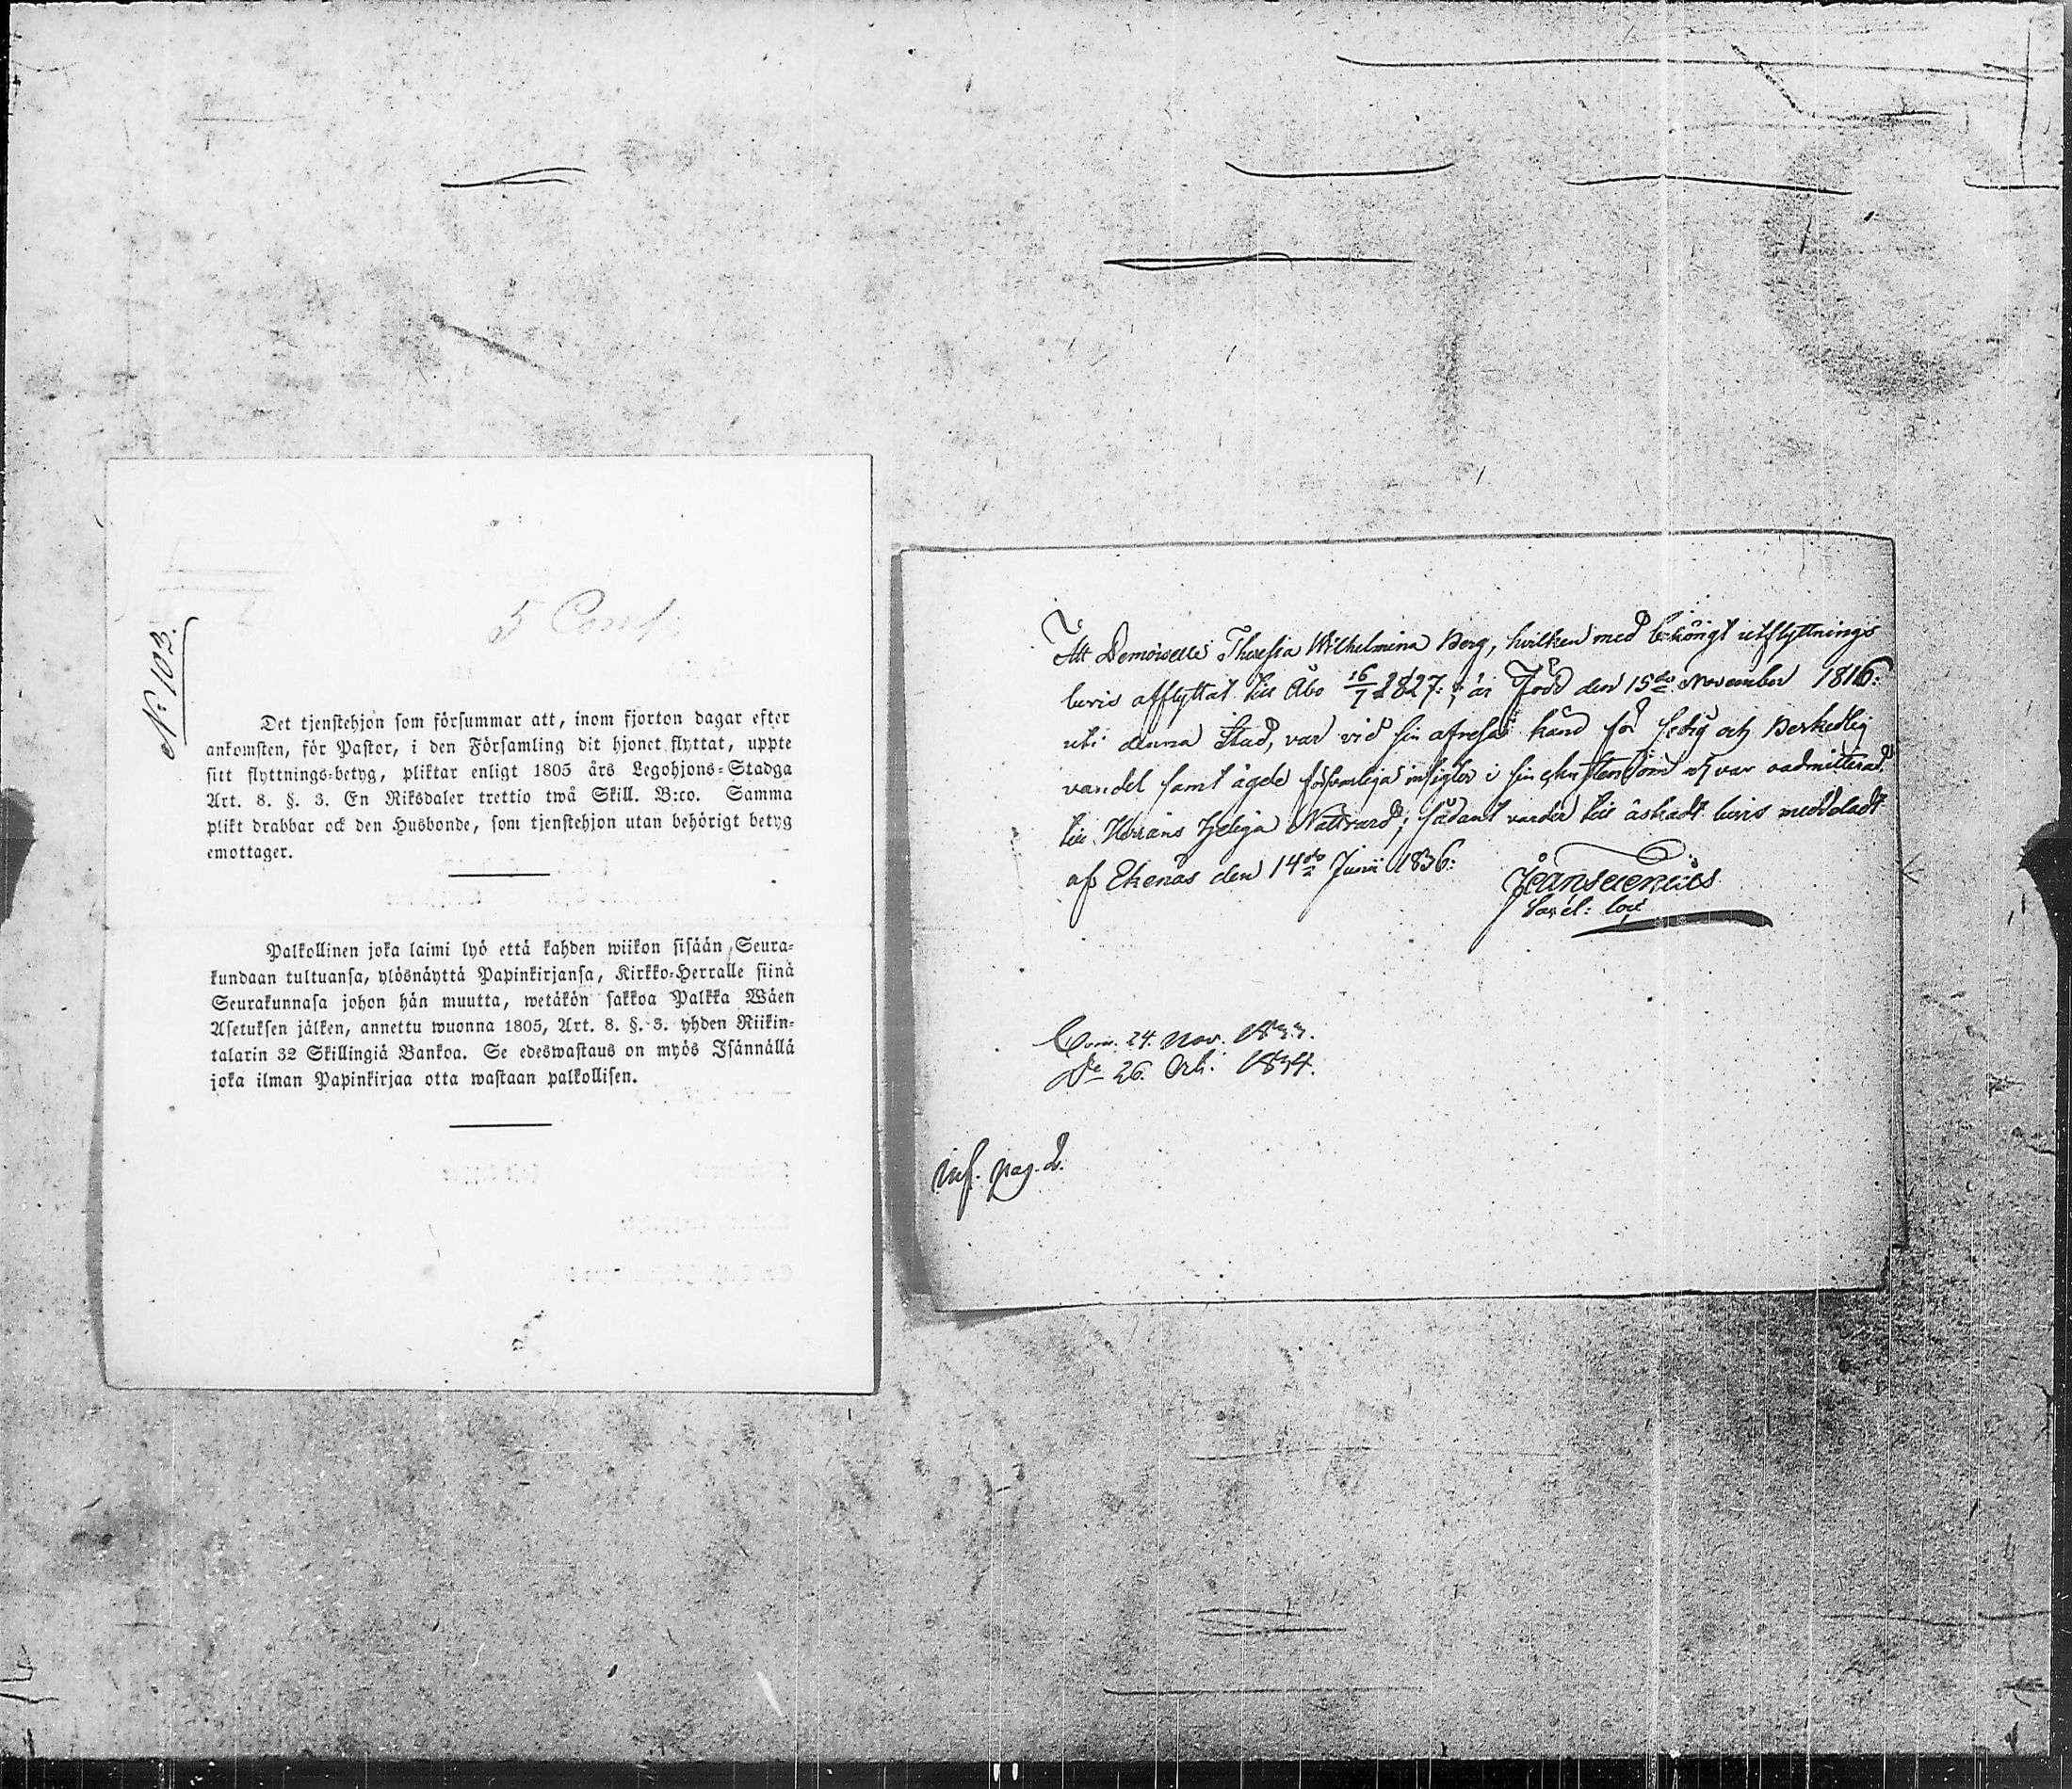 N: 103.
5 Conf.
Det tjenstehjon som försummar att, inom fjorton dagar efter
ankomsten, för Pastor, i den Församling dit hjonet flyttat, uppte
sitt flyttnings-betyg, pliktar enligt 1805 års Legohjons-Stadga
Art. 8. §. 3. En Riksdaler trettio twå Skill. B:co. Samma
plikt drabbar ock den Husbonde, som tjenstehjon utan behörigt betyg
emottager.
Palkollinen joka laimi lyö että kahden wiikon sisään Seura-
kundaan tultuansa, ylösnäyttä Papinkirjansa, Kirkko-Herralle siinä
Seurakunnasa johon hän muutta, wetäkön sakkoa Palkka Wäen
Asetuksen jälken, annettu wuonna 1805, Art. 8. §. 3. yhden Riikin-
talarin 32 Skillingiä Bankoa. Se edeswastaus on myös Isännällä
joka ilman Papinkirjaa otta wastaan palkollisen.
Att Demoiselle Theresia Wilhelmina Berg, hvilken med behörigt utflyttnings
bevis afflyttat till Åbo 16/7 1827:, är Född den 15de November 1816:
uti denna Stad, var vid sin afresa känd för sedig och Berkedlig
vandel samt ägde försvarliga insigter i sin christendom och var oadmitterad
till Herrans Heliga Nattvard; sådant varder till äskadt bevis meddeladt
af Ekenäs den 14de Junii 1836:
Com. 24. Nov. 1833.
De 26. Oct: 1834.
inf. pag. 2.